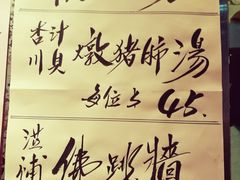 杏汁
川贝燉猪肺湯
每位$45.
滋補佛跳牆